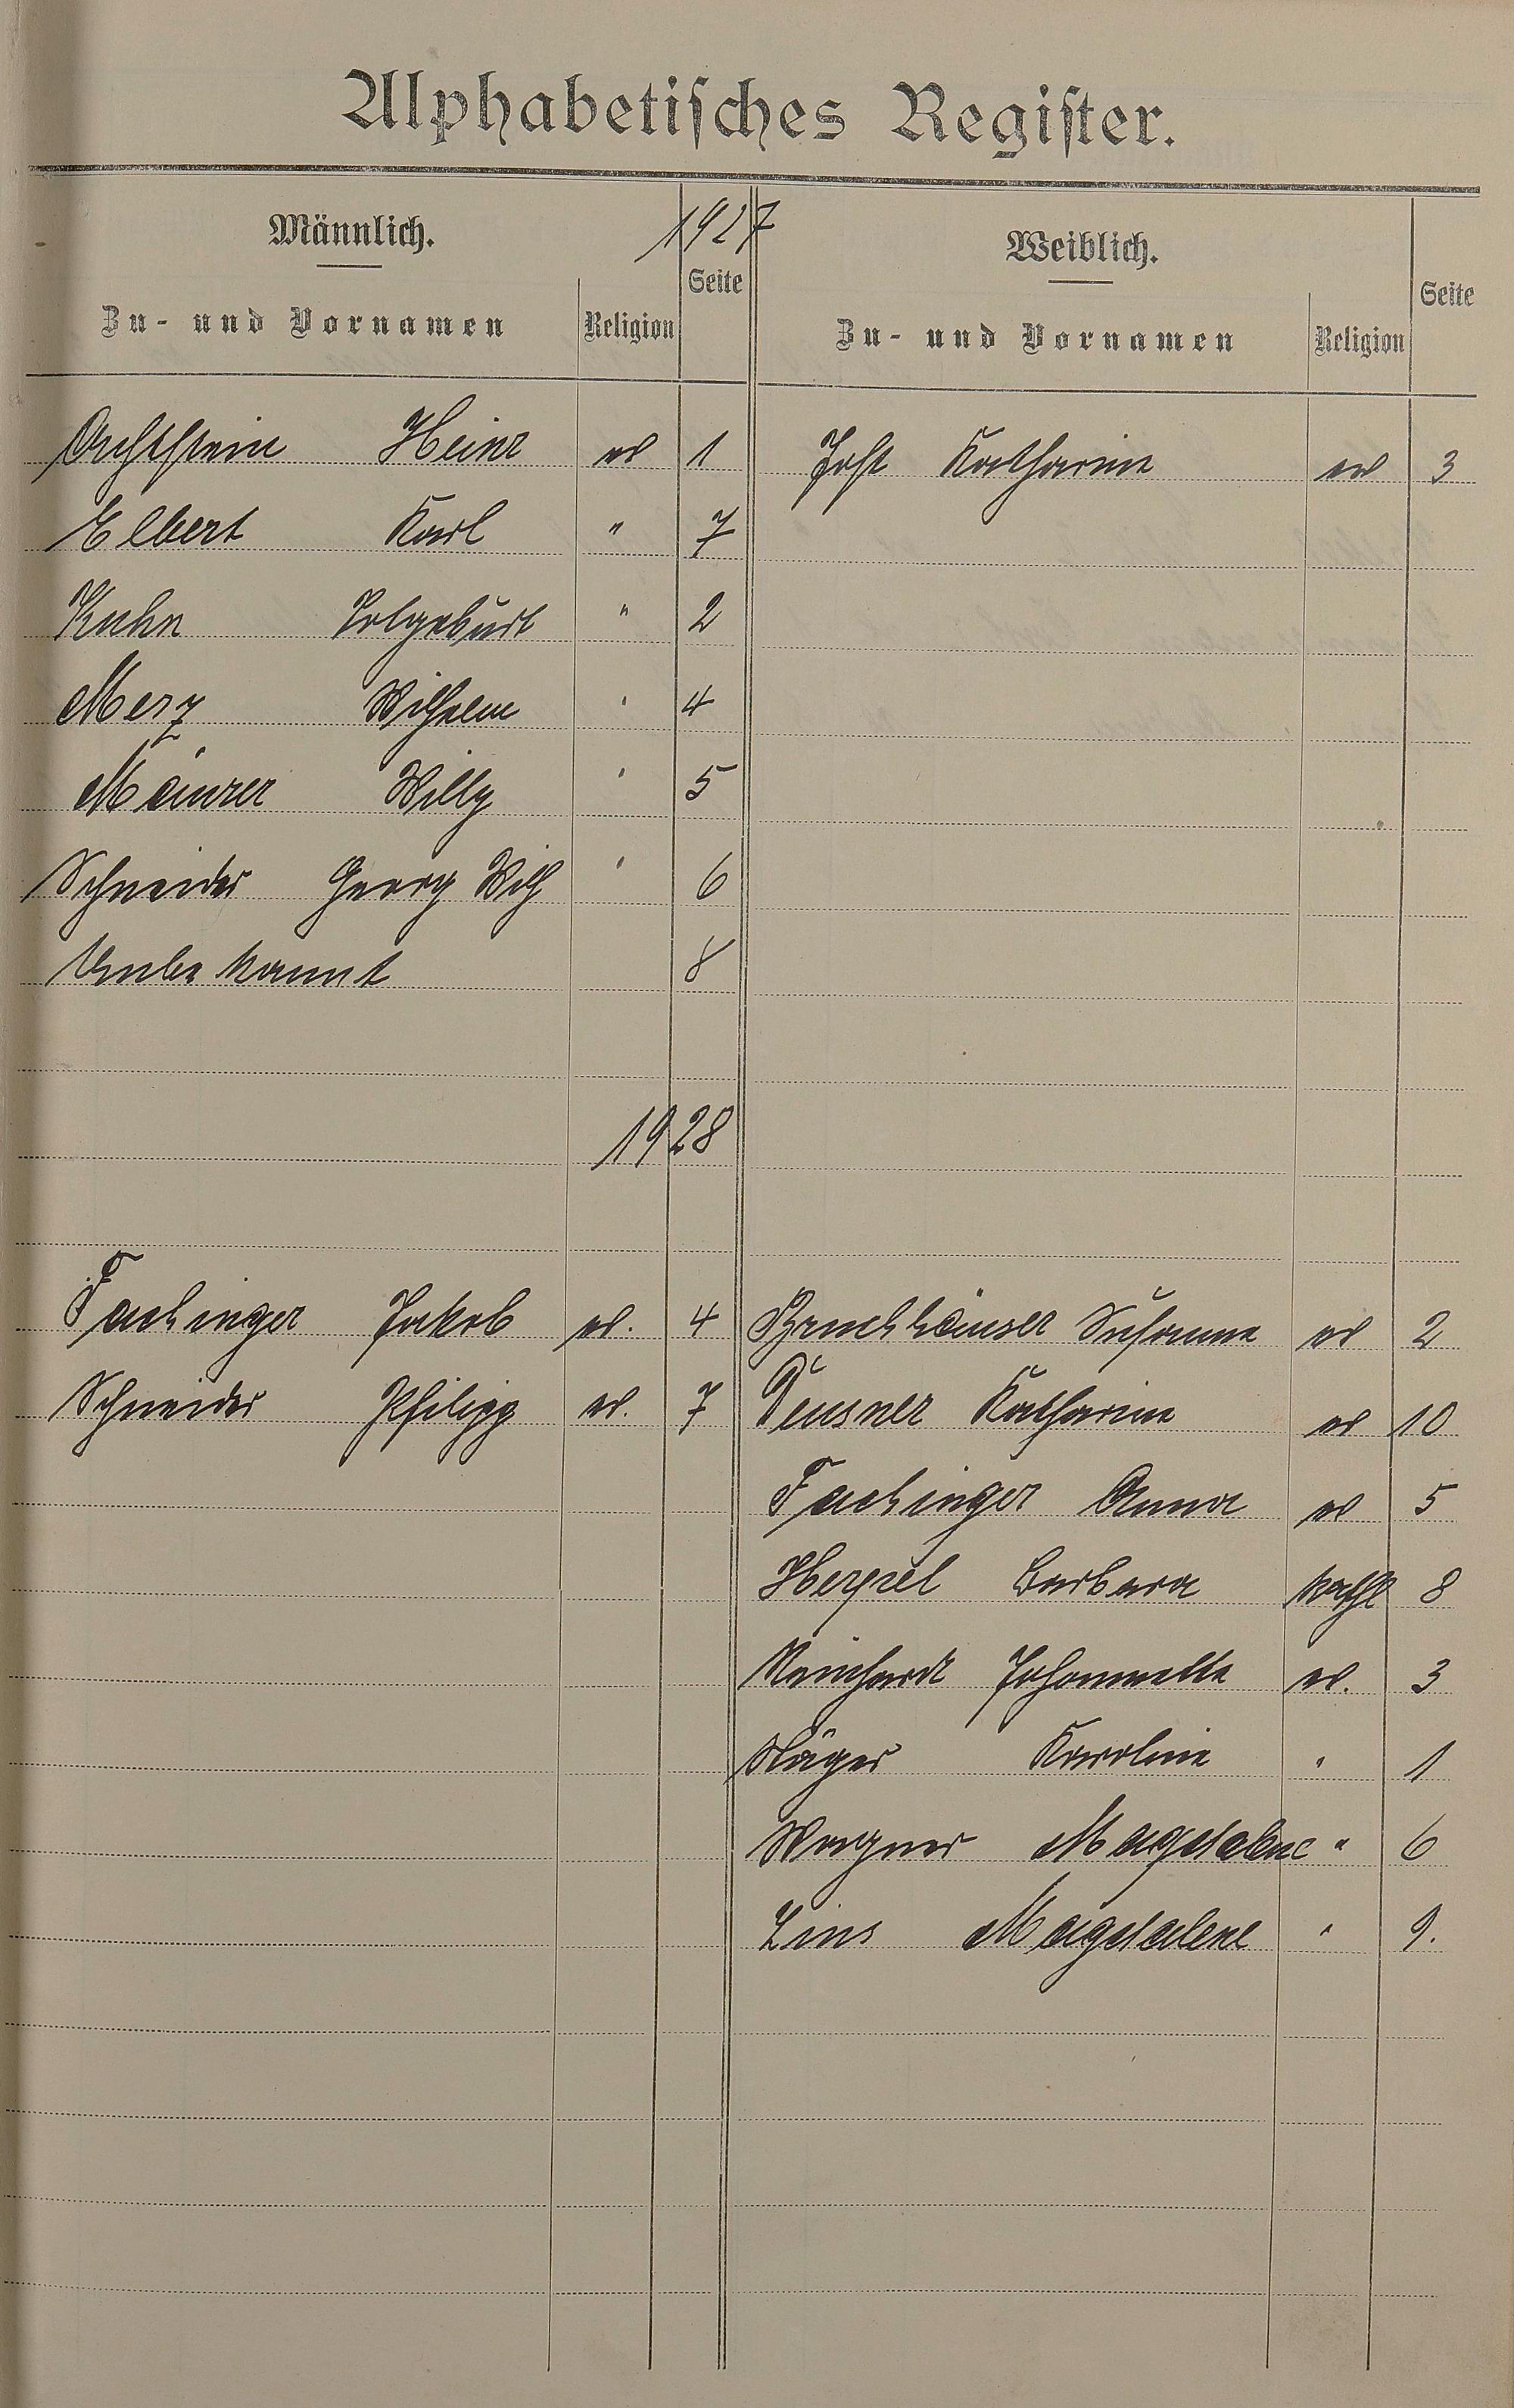 Alphabetisches Register.
Männlich. 1927 Weiblich.
Zu- und Vornamen Religion Seite Zu- und Vornamen Religion Seite
Heinz ev 1 Jost Katharine ev 3
Elbert Karl " 7
Kuhn Totgeburt " 2
Merz Wilhelm " 4
Mäurer Willy " 5
Schneider Georg Wilh " 6
Unbekannt 8
1928
Fachinger Jakob ev. 4 Bruchhäuser Susanne ev 2
Schneider Philipp ev. 7 Deusner Katharine ev 10
Fachinger Anna ev 5
Herpel Barbara kath 8
Reinhardt Johannette ev. 3
Karoline " 1
Wagner Magdalene " 6
Zins Magdalene " 9.